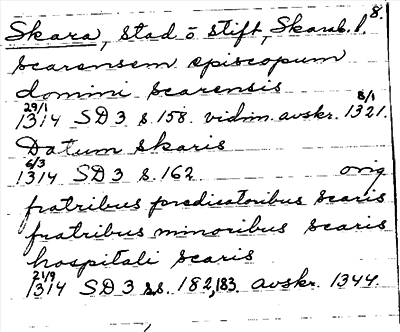 8.
Skara, stad o stift, Skarab. l.
scarensem episcopum
domini scarensis
29/1 8/1
1314 SD 3 s. 158. vidim. avskr. 1321.
Datum Skaris
6/3
1314 SD 3 s. 162. orig
fratribus predicatoribus scaris
fratribus minoribus scaris
hospitali scaris
21/9
1314 SD 3 s.s. 182, 183. avskr. 1344.